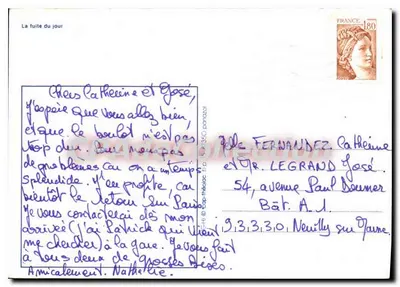 La fuite du jour
FRANCE
1,80
Chers Catherine et José,
J'espère que vous allez bien,
et que le boulot n'est pas
trop dur. Moi
de problèmes car on a un temps
splendide. J'en profite, car
bientôt le retour sur Paris
Je vous contacterai dès mon
arrivée (j'ai Patrick qui vient
me chercher) à la gare. Je vous fait
à vous deux de grosses bises.
Amicalement. Nathalie.
Melle FERNANDEZ Catherine
et Mr LEGRAND José
54, avenue Paul Doumer
Bât. A.1
9.3.3.3.0. Neuilly sur Marne